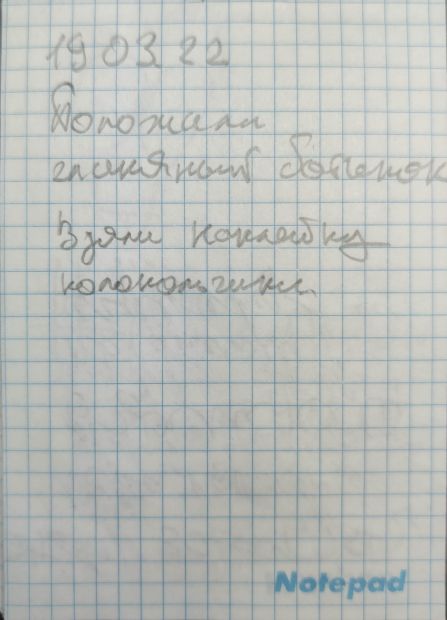 19 03 22
Положили
глиняный бочонок
Взяли наклейку
колокольчики
Notepad